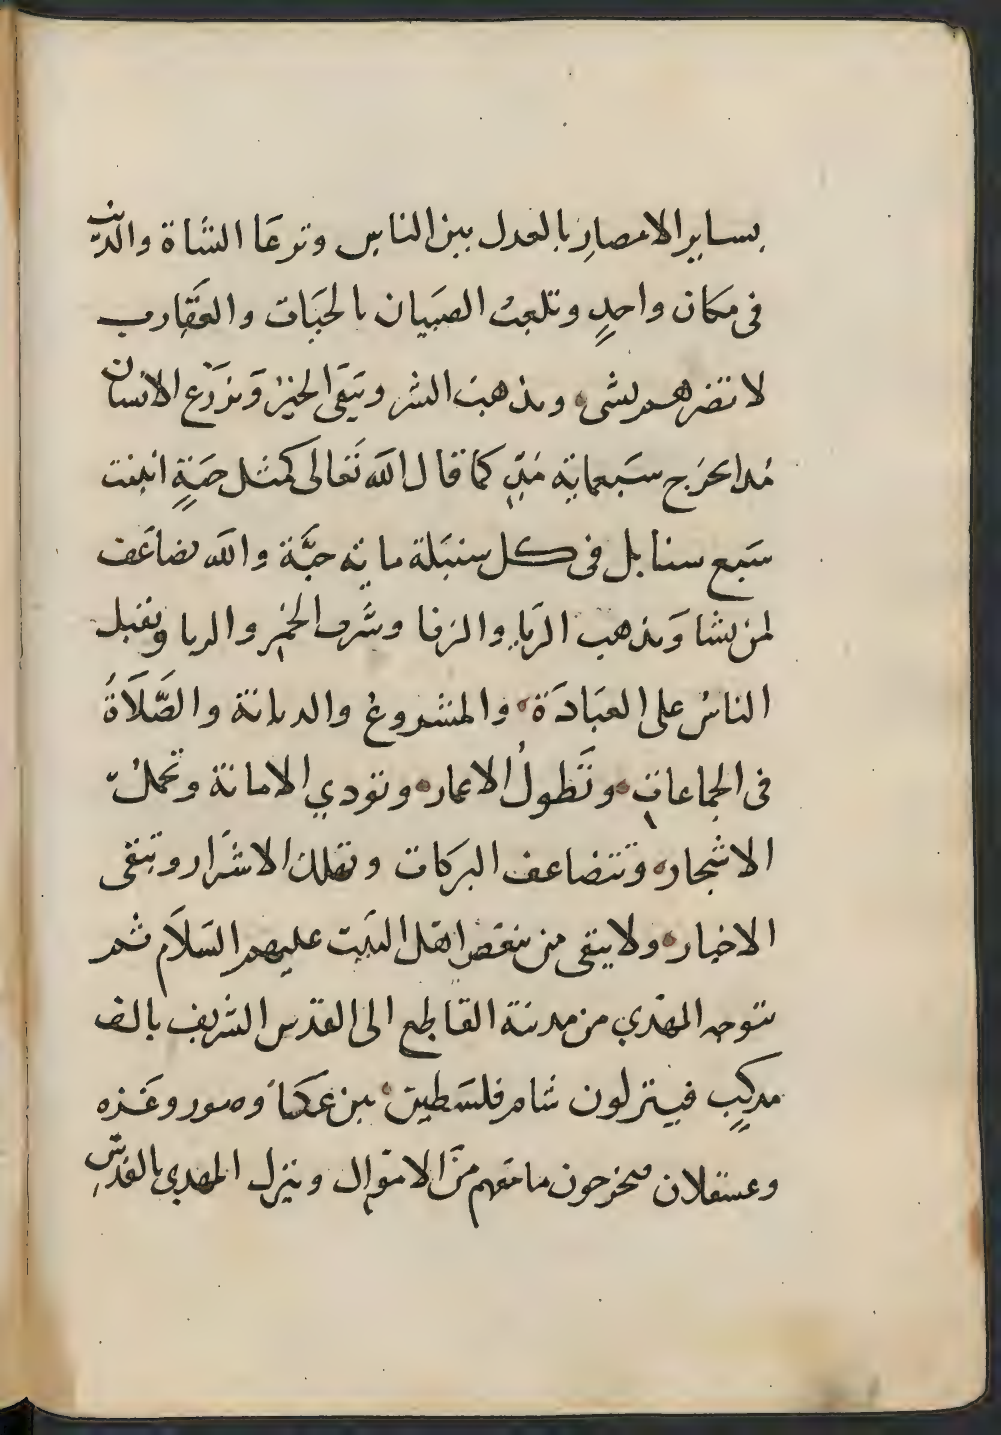 بسایر الامصارِ بالعدل بین الناس وترعَا الشاة والذیب
فی مکان واحدٍ وتلعبُ الصبیان بالحیَات والعقارب
لا تضرهم بشی ویذهب الشر ویبقی الخیر وَیزرَع الانسان
مُدا یخرج سبعمایة مُدٍّ کما قال الله تَعالی کمثل حبَةٍ انبتت
سَبع سنابل فی کل سنبَلة مایة حبَّة والله یضاعَف
لمن یشا وَیذهب الرَیا والزنا وشُرب الخمرِ والربا ویقبل
الناسُ علی العبَادَة والمشروعُ والدیانة والصَّلَاةُ
فی الجماعاتِ وتَطولُ الاعمار وتودي الامانة وتحملُ
الاشجار وَتتضاعف البرکات وتهلك الاشَرار وتبقی
الاخیار ولا یبقی من یبغض اهل البَیت علیهم السَلَام ثم
یتوجه المهدي من مدینة القاطع الی القدس الشریف بالف
مرکبٍ فینزلون شام فلسَطین بین عکَا وصور وغَزه
وعسقلان فیخرجون ما معَهم منَ الاموَال وینزل المهدی بالقدسِ